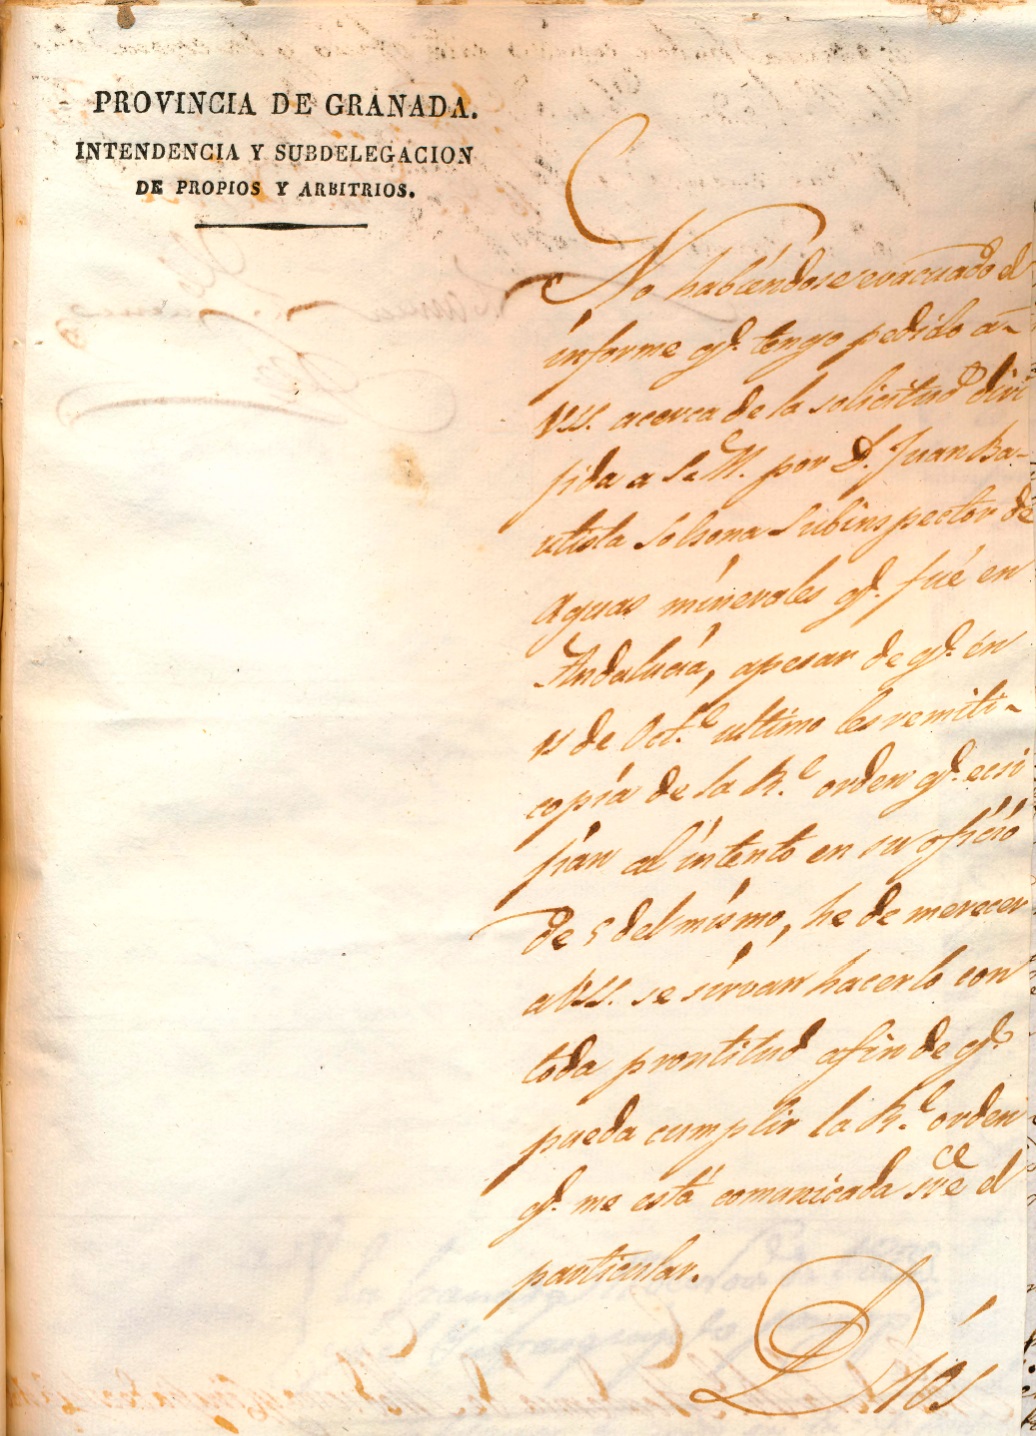 PROVINCIA DE GRANADA.
INTENDENCIA Y SUBDELEGACION
DE PROPIOS Y ARBITRIOS.
No habiendose evacuado el
informe qe. tengo pedido a
VSS. acerca de la solicitud diri
jida a S. M. por D. Juan Ba-
utista Solsona Subinspector de
Aguas minerales qe. fué en
Andalucia, apesar de qe. en
15 de Octe. ultimo les remiti
copia de la Rl. orden qe. ecsi
jian al intento en su oficio
de 5 del mismo, he de merecer
a VSS. se sirvan hacerlo con
toda prontitud afin de qe.
pueda cumplir la Rl. orden
qe. me está comunicada sre. el
particular.
Dios